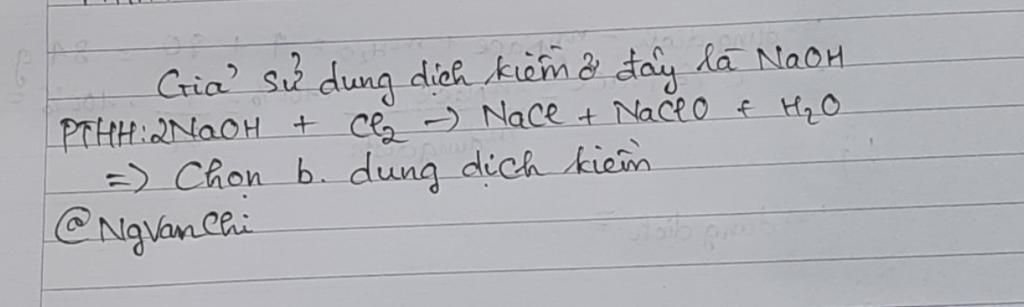 Giả sử dung dịch kiềm ở đây là NaOH
PTHH: 2NaOH + Cl₂ → NaCl + NaClO + H₂O
=> Chọn b. dung dịch kiềm
@NgVanChi